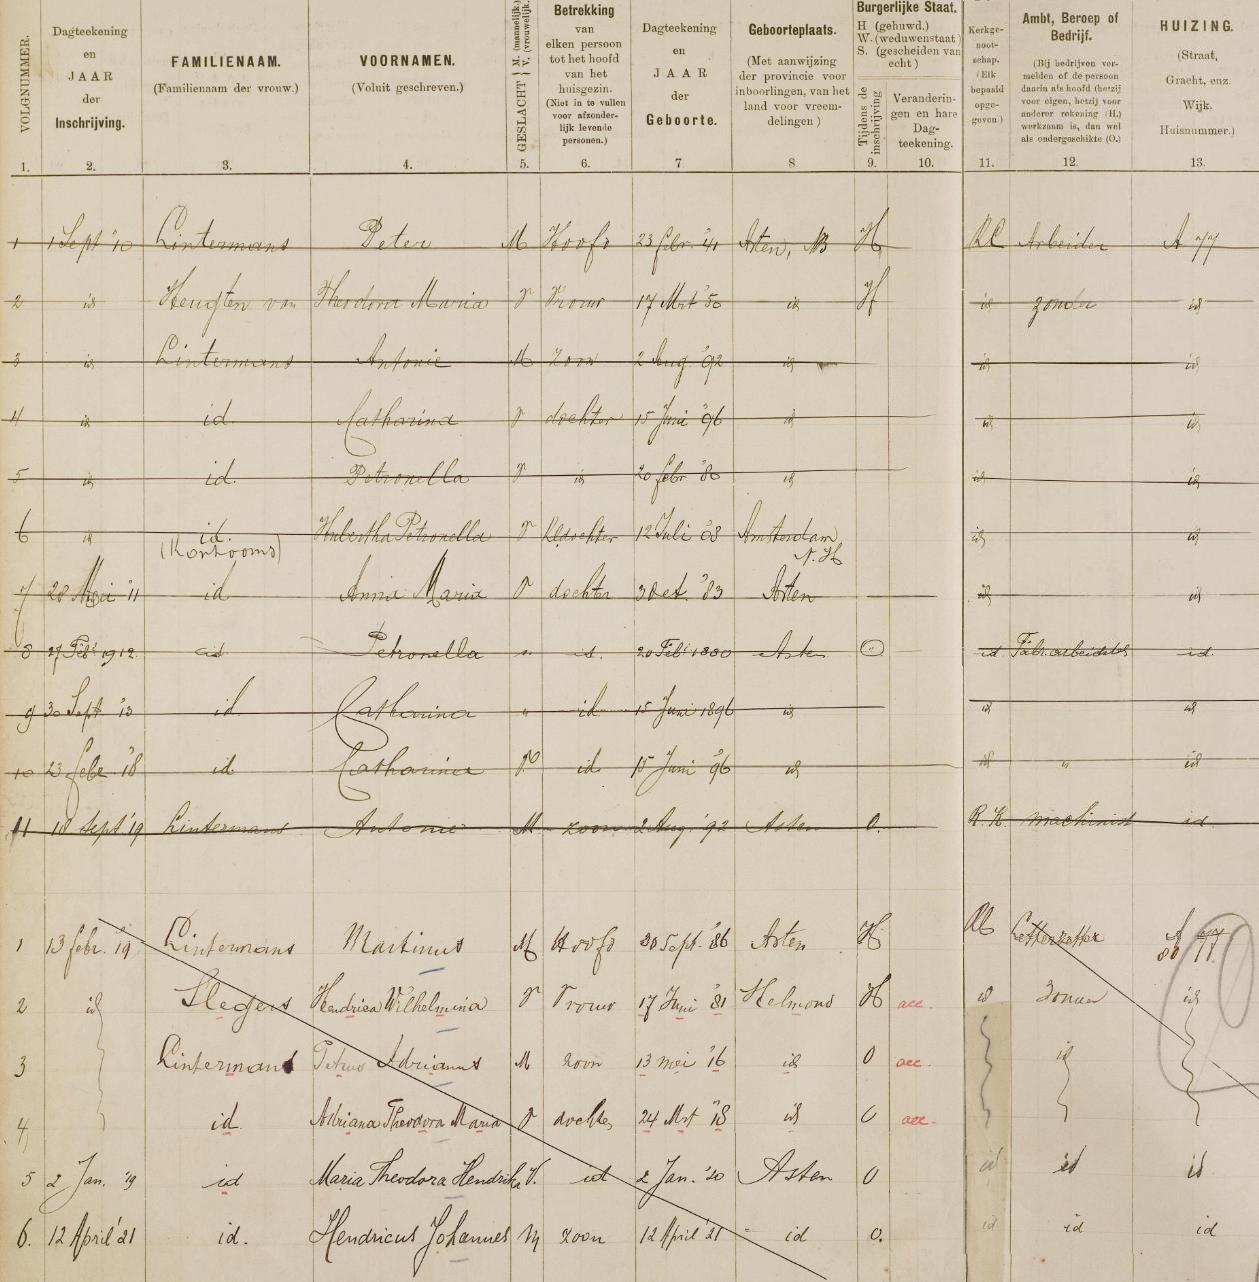 VOLGNUMMER.
Dagteekening
en
JAAR
der
Inschrijving.
FAMILIENAAM.
(Familienaam der vrouw.)
VOORNAMEN.
(Voluit geschreven.)
GESLACHT { M. (mannelijk.) V. (vrouwelijk.)
Betrekking
van
elken persoon
tot het hoofd
van het
huisgezin.
(Niet in te vullen
voor afzonder-
lijk levende
personen.)
Dagteekening
en
JAAR
der
Geboorte.
Geboorteplaats.
(Met aanwijzing
der provincie voor
inboorlingen, van het
land voor vreem-
delingen)
Burgerlijke Staat.
H (gehuwd.)
W. (weduwenstaat)
S. (gescheiden van
echt)
Tijdens de
inschrijving
Veranderin-
gen en hare
Dag-
teekening.
Kerkge-
noot-
schap.
(Elk
bepaald
opge-
geven.)
Ambt, Beroep of
Bedrijf.
(Bij bedrijven ver-
melden of de persoon
daarin als hoofd (hetzij
voor eigen, hetzij voor
anderer rekening (H.)
werkzaam is, dan wel
als ondergeschikte (O.)
HUIZING.
(Straat,
Gracht, enz.
Wijk.
Huisnummer.)
1. 2. 3. 4. 5. 6. 7 8 9. 10. 11. 12. 13.
1 1 Sept '10 Lintermans Peter M Hoofd 23 febr. '41 Asten, NB H RC Arbeider A 77
2 id Heugten van Theodora Maria V Vrouw 17 Mrt '50 id H id zonder id
3 id Lintermans Antonie M Zoon 2 Aug. '92 id id id
4 id id. Catharina V dochter 15 Juni '96 id id id
5 id id. Petronella V id 20 febr. '80 id id id
6 id id. Hubertha Petronella V Kldochter 12 Juli '08 Amsterdam id id
(Kortooms) N.H
7 28 Mei '11 id Anna Maria V dochter 3 Oct. '83 Asten id id
8 27 Febr 1912. id Petronella " id. 20 Febr 1880 Asten id Fabr.arbeidster id.
9 30 Sept '13 id Catharina " id. 15 Juni 1896 id id id
10 23 febr '18 id Catharina V id. 15 Juni '96 id id " id
11 18 Sept '19 Lintermans Antonie M zoon 2 Aug. '92 Asten O. R.K. machinist id.
1 13 febr. '19 Lintermans Martinus M Hoofd 30 Sept. '86 Asten H RC Letterzetter A 77
80
2 id Slegers Hendrica Wilhelmina V Vrouw 17 Juni '81 Helmond H acc. id Zonder id
3 Lintermans Petrus Adrianus M zoon 13 mei '16 id O acc. id
4 id. Adriana Theodora Maria V dochter 24 Mrt '18 id O acc.
5 2 Jan. '19 id Maria Theodora Hendrika V. id 2 Jan. '20 Asten O id id id
6. 12 April '21 id. Hendricus Johannes M zoon 12 April '21 id O. id id id